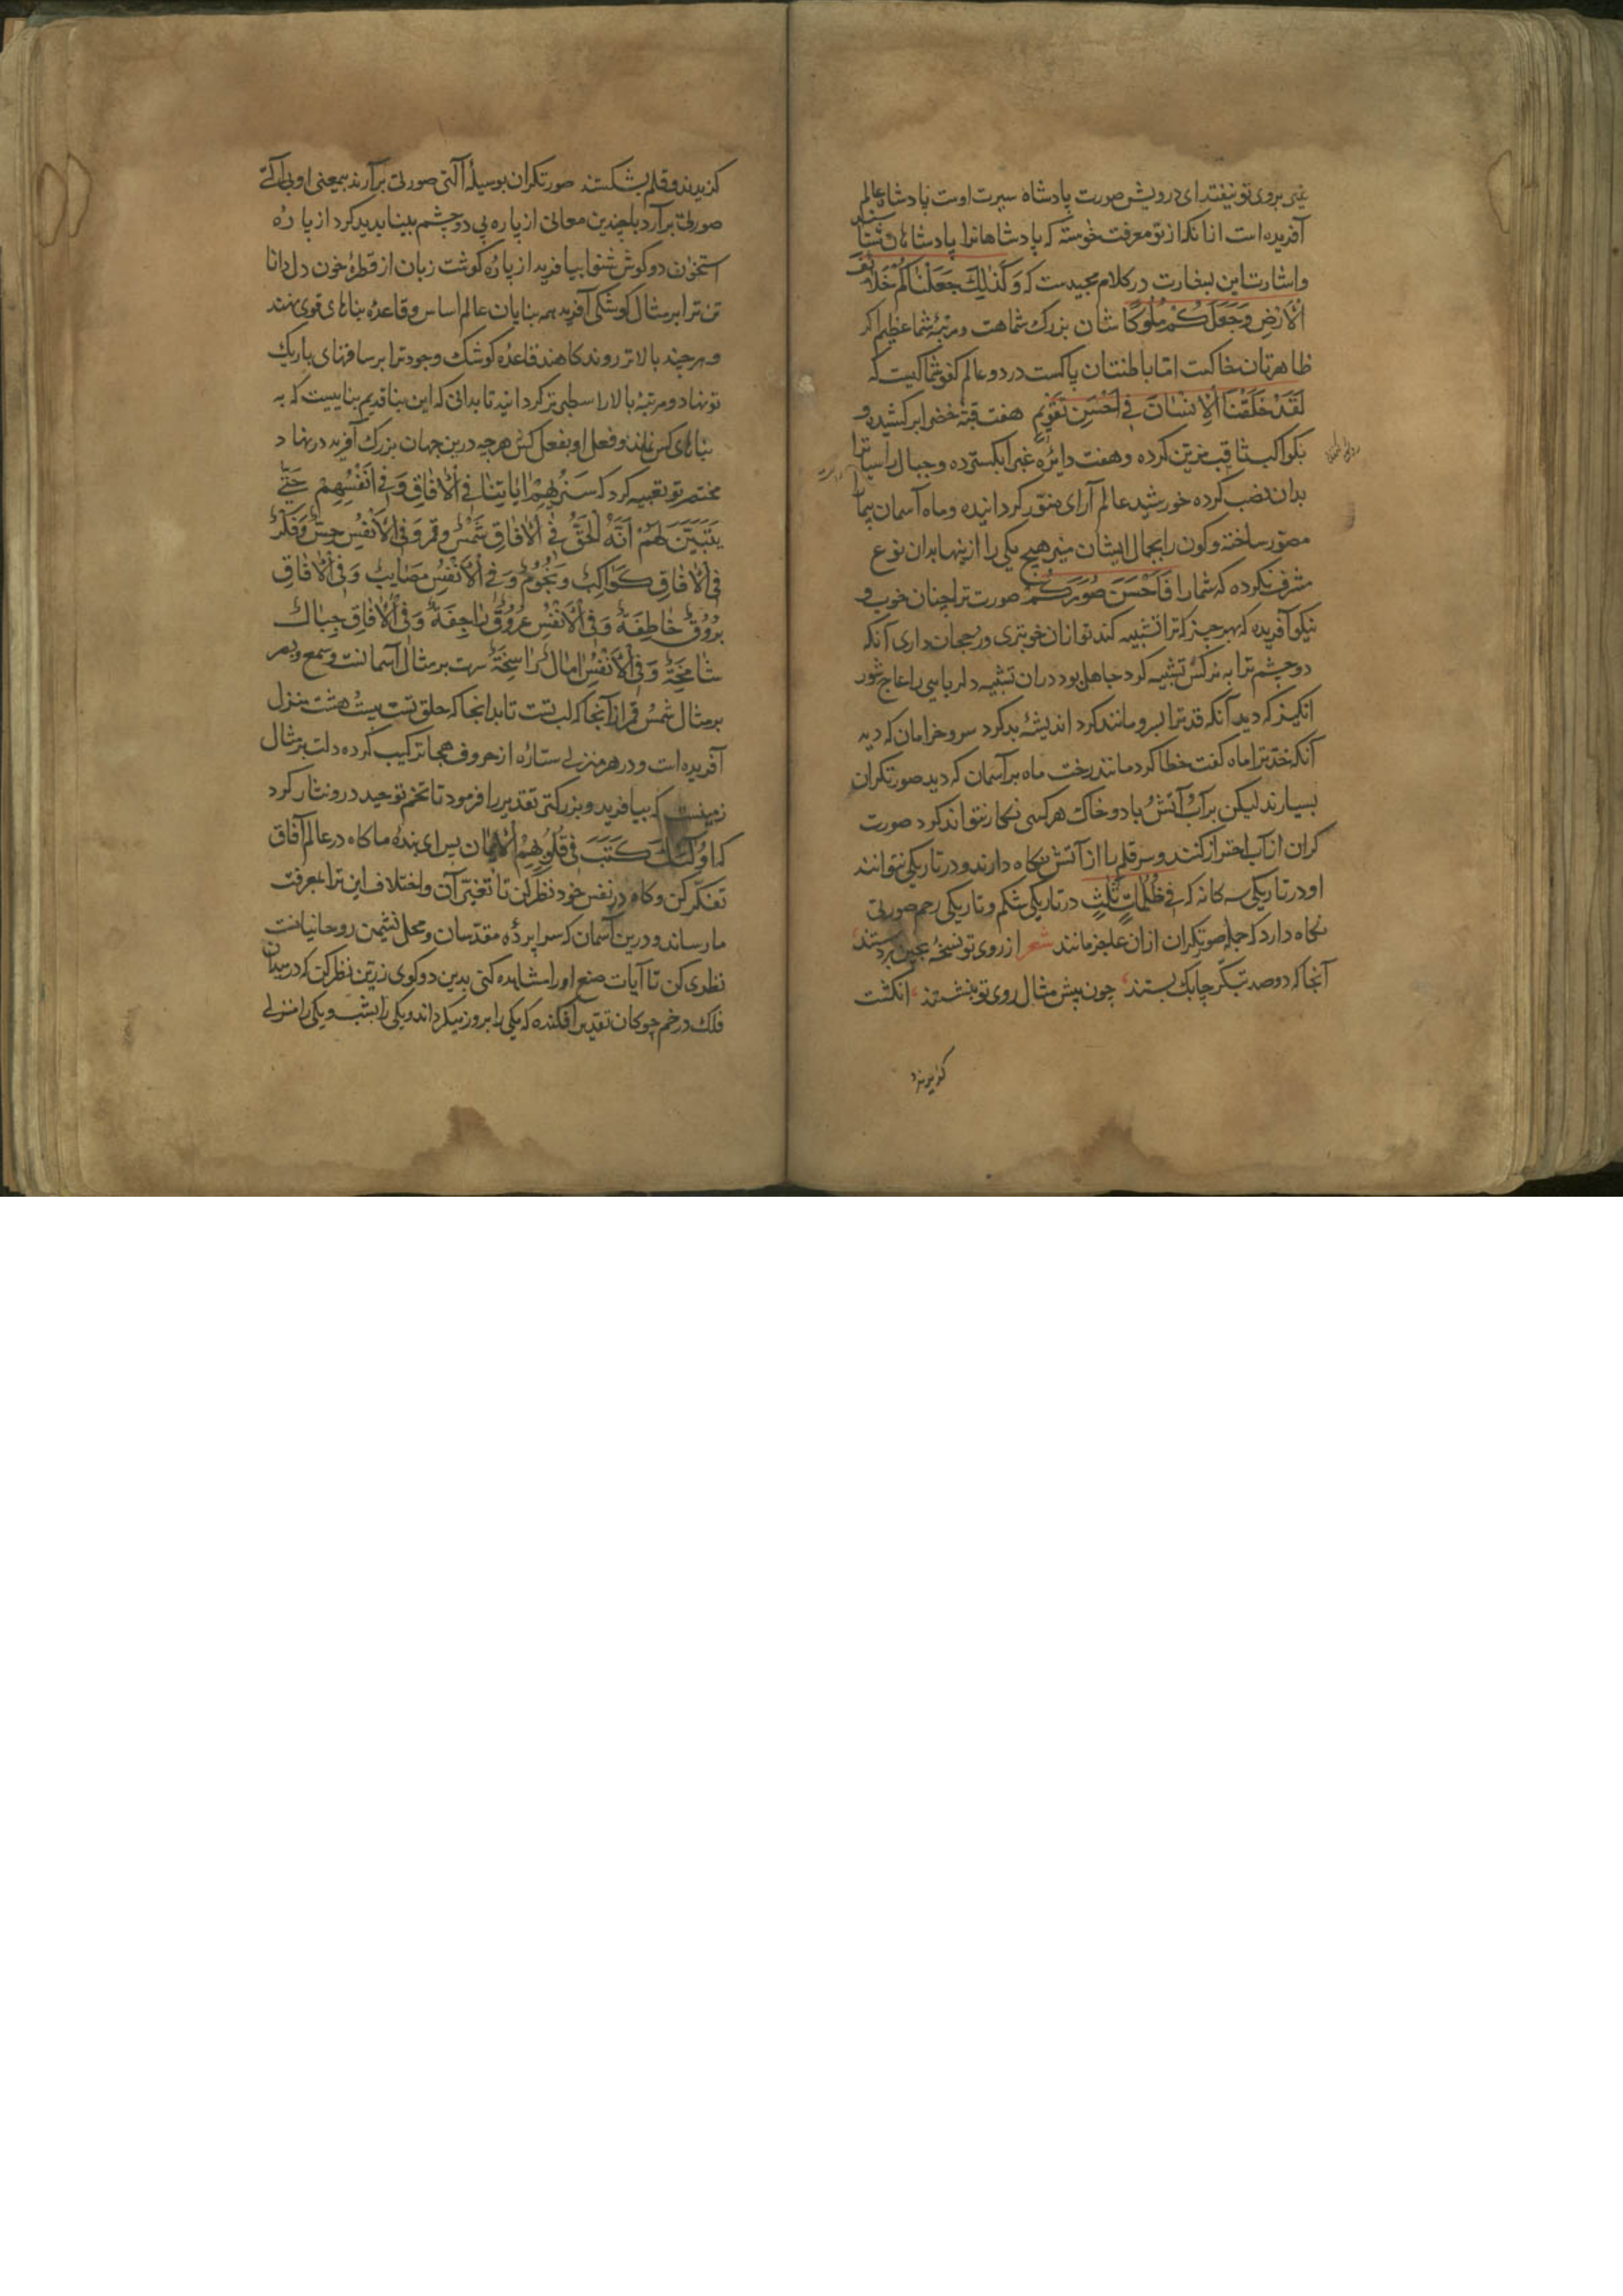 غیری بروی تو نیفتد ای درویش صورت پادشاه سیرت اوست پادشاه عالم
آفریده است از انکه از تو معرفت خواسته که پادشاهانرا پادشاهان شناسند
و اشارت این بشارت در کلام مجیدست که وَكَذٰلِكَ جَعَلْنَاكُمْ خَلَائِفَ
الْاَرْضِ وَجَعَلَكُمْ مُلُوكًا شان بزرگ شماست و مرتبهٔ شما عظیم اگر
ظاهرتان خاکست اما باطنتان پاکست در دو عالم کفو شما کیست که
لَقَدْ خَلَقْنَا الْاِنْسَانَ فِي اَحْسَنِ تَقْوِيمٍ هفت قبهٔ خضرا برکشیده و
بکواکب ثاقب مزین کرده و هفت دایرهٔ غبرا بکسترده و جبال راسیاترا
بدان نصب کرده خورشید عالم آرای منور کردانیده و ماه آسمان پیما را
مصور ساخته و کون را بجمال ایشان هیچ یکی را ازینها بدان نوع
مشرف نکرده که شما را فَاَحْسَنَ صُوَرَكُمْ صورت ترا چنان خوب و
نیکو آفریده که بهر چیز که ترا تشبیه کند تو ازان خوبتری و رجحان داری آنکه
دو چشم ترا به نرکس تشبیه کرد جاهل بود دران تشبیه دلربایی را عاج شور
انکیز که دید آنکه قد ترا بسرو مانند کرد اندیشهٔ بد کرد سرو خرامان که دید
آنکه خد ترا ماه کفت خطا کرد مانند رخت ماه بر آسمان که دید صورتکران
بسیارند لیکن بر آب و آتش و باد و خاک هر کسی نکار نتواند کرد صورت
کران از آب احتراز کنند و سر قلم را از آتش نکاه دارند و در تاریکی نتوانند
او در تاریکی سه کانه که فِي ظُلُمَاتٍ ثَلٰثٍ در تاریکی شکم و تاریکی رحم صورتی
نکاه دارد که جمله صورتکران ازان عاجز مانند شعر از روی تو نسخهٔ بچین بردستند
آنجا که دو صد بتکر چابک دستند، چون پیش مثال روی تو بنشستند، انکشت
کزیدند
کزیدند و قلم بشکستند صورتکران بوسیلهٔ آلتی صورتی برآرند بیمعنی او بی آلتی
صورتی برآرد با چندین معانی از پاره پی دو چشم بینا بدید کرد از پاره
استخوان دو کوش شنوا بیافرید از پاره کوشت زبان از قطره خون دل دانا
تن ترا بر مثال کوشکی آفرید همه بنایان عالم اساس و قاعدهٔ بناهای قوی نهند
و هر چند بالاتر روند کاهند قاعدهٔ کوشک وجود ترا بر ساقهای باریک
تو نهاد و مرتبهٔ بالا را سطبرتر کردانید تا بدانی که این بنا قدیم بناییست که به
بناهای کس نماند و فعل او بفعل کس هرچه درین جهان بزرک آفرید در نهاد
مختصر تو تعبیه کرد که سَنُرِيهِمْ اٰيَاتِنَا فِي الْاٰفَاقِ وَفِي اَنْفُسِهِمْ حَتّٰى
يَتَبَيَّنَ لَهُمْ اَنَّهُ الْحَقُّ فِي الْاٰفَاقِ شَمْسٌ وَقَمَرٌ وَفِي الْاَنْفُسِ حِسٌّ وَفِكْرٌ
فِي الْاٰفَاقِ كَوَاكِبُ وَنُجُومٌ وَفِي الْاَنْفُسِ مَصَايِبُ وَفِي الْاٰفَاقِ
بُرُوقٌ خَاطِفَةٌ وَفِي الْاَنْفُسِ عُرُوقٌ رَاجِفَةٌ وَفِي الْاٰفَاقِ جِبَالٌ
شَامِخَةٌ وَفِي الْاَنْفُسِ اٰمَالٌ رَاسِخَةٌ سرت بر مثال آسمانست و سمع و بصر
بر مثال شمس و قمر از آنجا که لب تست تا بدانجا که حلق تست بیست هشت منزل
آفریده است و در هر منزلی ستاره از حروف هجا ترکیب کرده دلت بر مثال
زمینست که بیافرید و بزرکتی تقدیر را فرمود تا تخم توحید درو نثار کرد
که اُولٰئِكَ كَتَبَ فِي قُلُوبِهِمُ الْاِيمَانَ پس ای بندهٔ ما کاه در عالم آفاق
تفکر کن و کاه در نفس خود نظر کن تا تغیر آن و اختلاف این ترا بمعرفت
ما رساند و درین آسمان که سراپردهٔ مقدسان و محل نشیمن روحانیانست
نظری کن تا آیات صنع او را مشاهده کنی بدین دو کوی زرین نظر کن که در میدان
فلک در خم چوکان تقدیر افکنده که یکی را بروز میکرداند و یکی را بشب و یکی را منزلی